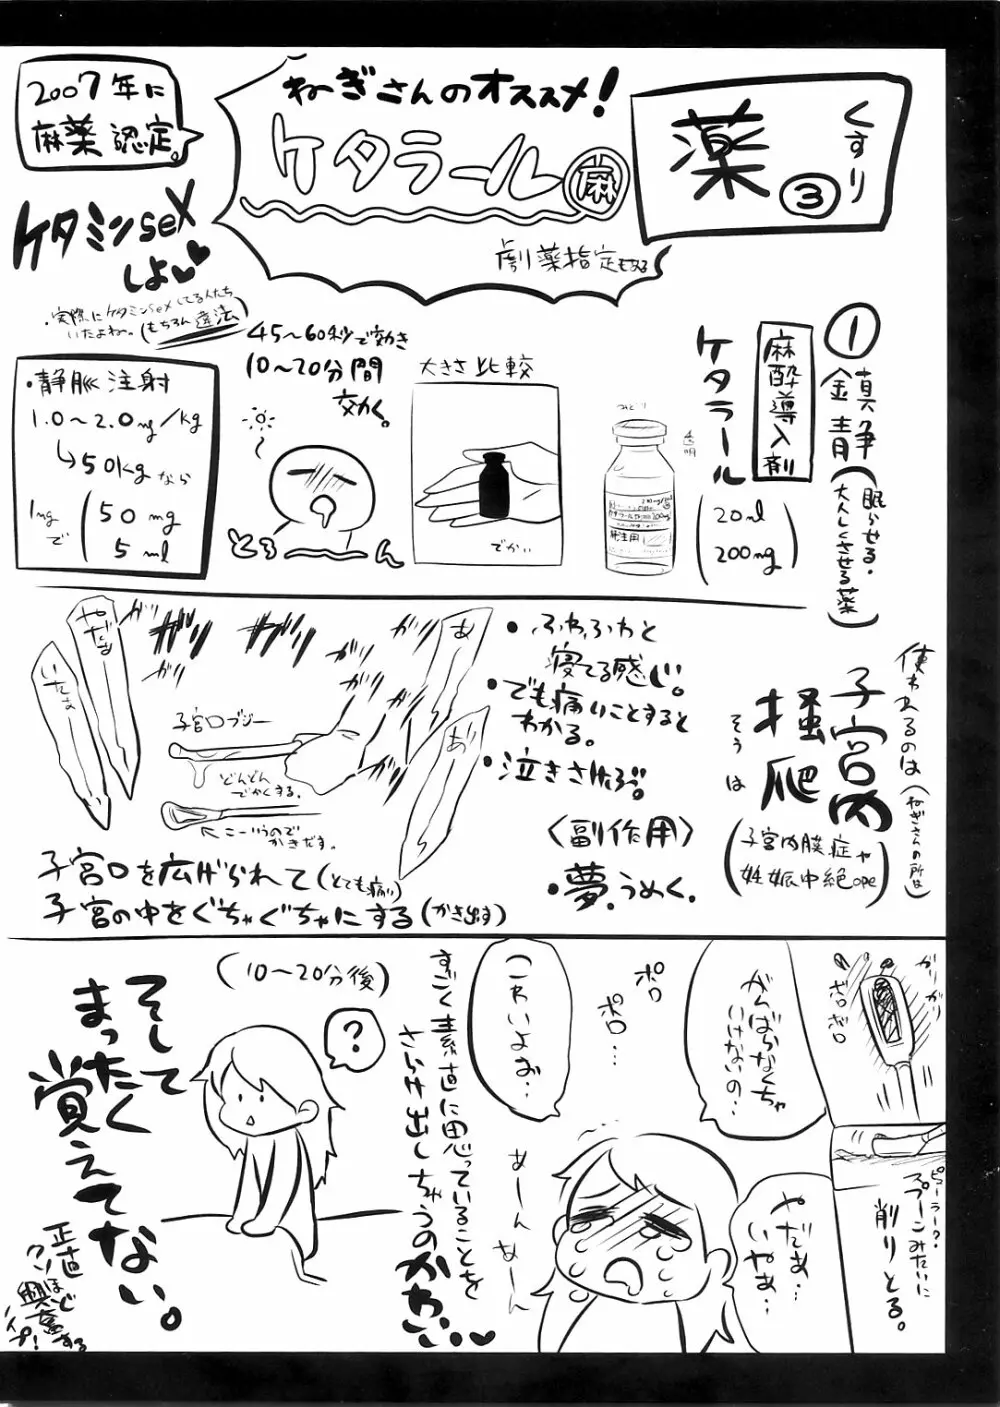 薬
くすり
③
ねぎさんのオススメ!
ケタラール
麻
劇薬指定もある
2007年に
麻薬認定。
ケタミンseX
しよ♥♥
・実際にケタミンsexしてる人たち
いたよね〜。(もちろん違法)
①鎮静(眠らせる・
大人しくさせる薬)
麻酔導入剤
ケタラール
(20ml
200mg)
透明
静注用
大きさ比較
でかい
45〜60秒で効き
10〜20分間
効く。
とろ〜ん
・静脈注射
1.0〜2.0mg/kg
↳50kgなら
1mgで
(50mg
5ml
使われるのは(ねぎさんの所は)
子宮内
掻爬
そうは
(子宮内膜症や
妊娠中絶ope)
・ふわふわと
寝てる感じ。
・でも痛いことすると
わかる。
・泣きさけぶ。
〈副作用〉
・夢、うめく。
あ
あ
ガリ
ガリ
ガリ
ガリ
やだぁ
いたぁ
子宮口ブジー
どんどん
でかくする。
こーいうので
かきだす。
子宮口を広げられて(とても痛い)
子宮の中をぐちゃぐちゃにする(かき出す)
ガリガリ
ボロボロ
ピューラー?
スプーンみたいに
削りとる。
がんばらなくちゃ
いけないの…
やだぁ…
いやぁ…
ポロ
ポロ…
こわいよぉ…
あーん
あーん
すごく素直に思っていることを
さらけ出しちゃうのかわいい♥
(10〜20分後)
?
そして
まったく
覚えてない。
正直
クソほど
興奮する